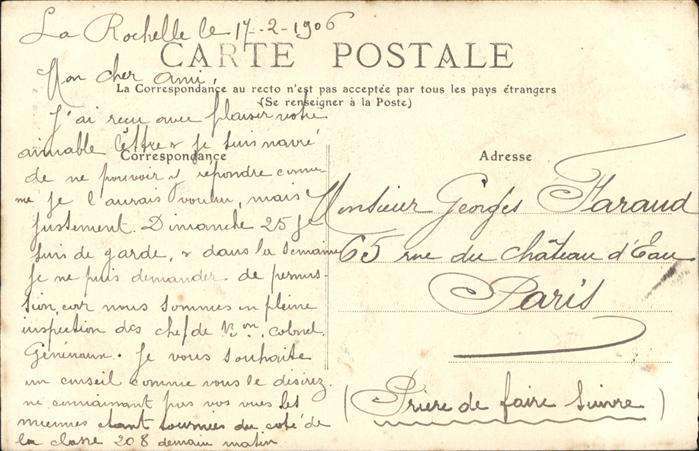 La Rochelle le 17-2-1906
CARTE POSTALE
Mon cher ami,
La Correspondance au recto n'est pas acceptée par tous les pays étrangers
(Se renseigner à la Poste)
J'ai reçu avec plaisir votre
aimable lettre & je suis navré
Correspondance
de ne pouvoir y répondre comme
me je l'aurais voulu, mais
justement. Dimanche 25 je
suis de garde, & dans la semaine
je ne puis demander de permis-
sion, car nous sommes en pleine
inspection des chef de Bon, colonel
Généraux. Je vous souhaite
un conseil comme vous le désirez
ne connaissant pas vos vues les
miennes étant tournées du côté de
la classe 208 demain matin
Adresse
Monsieur Georges Faraud
65 rue du château d'Eau
Paris
(Prière de faire suivre)